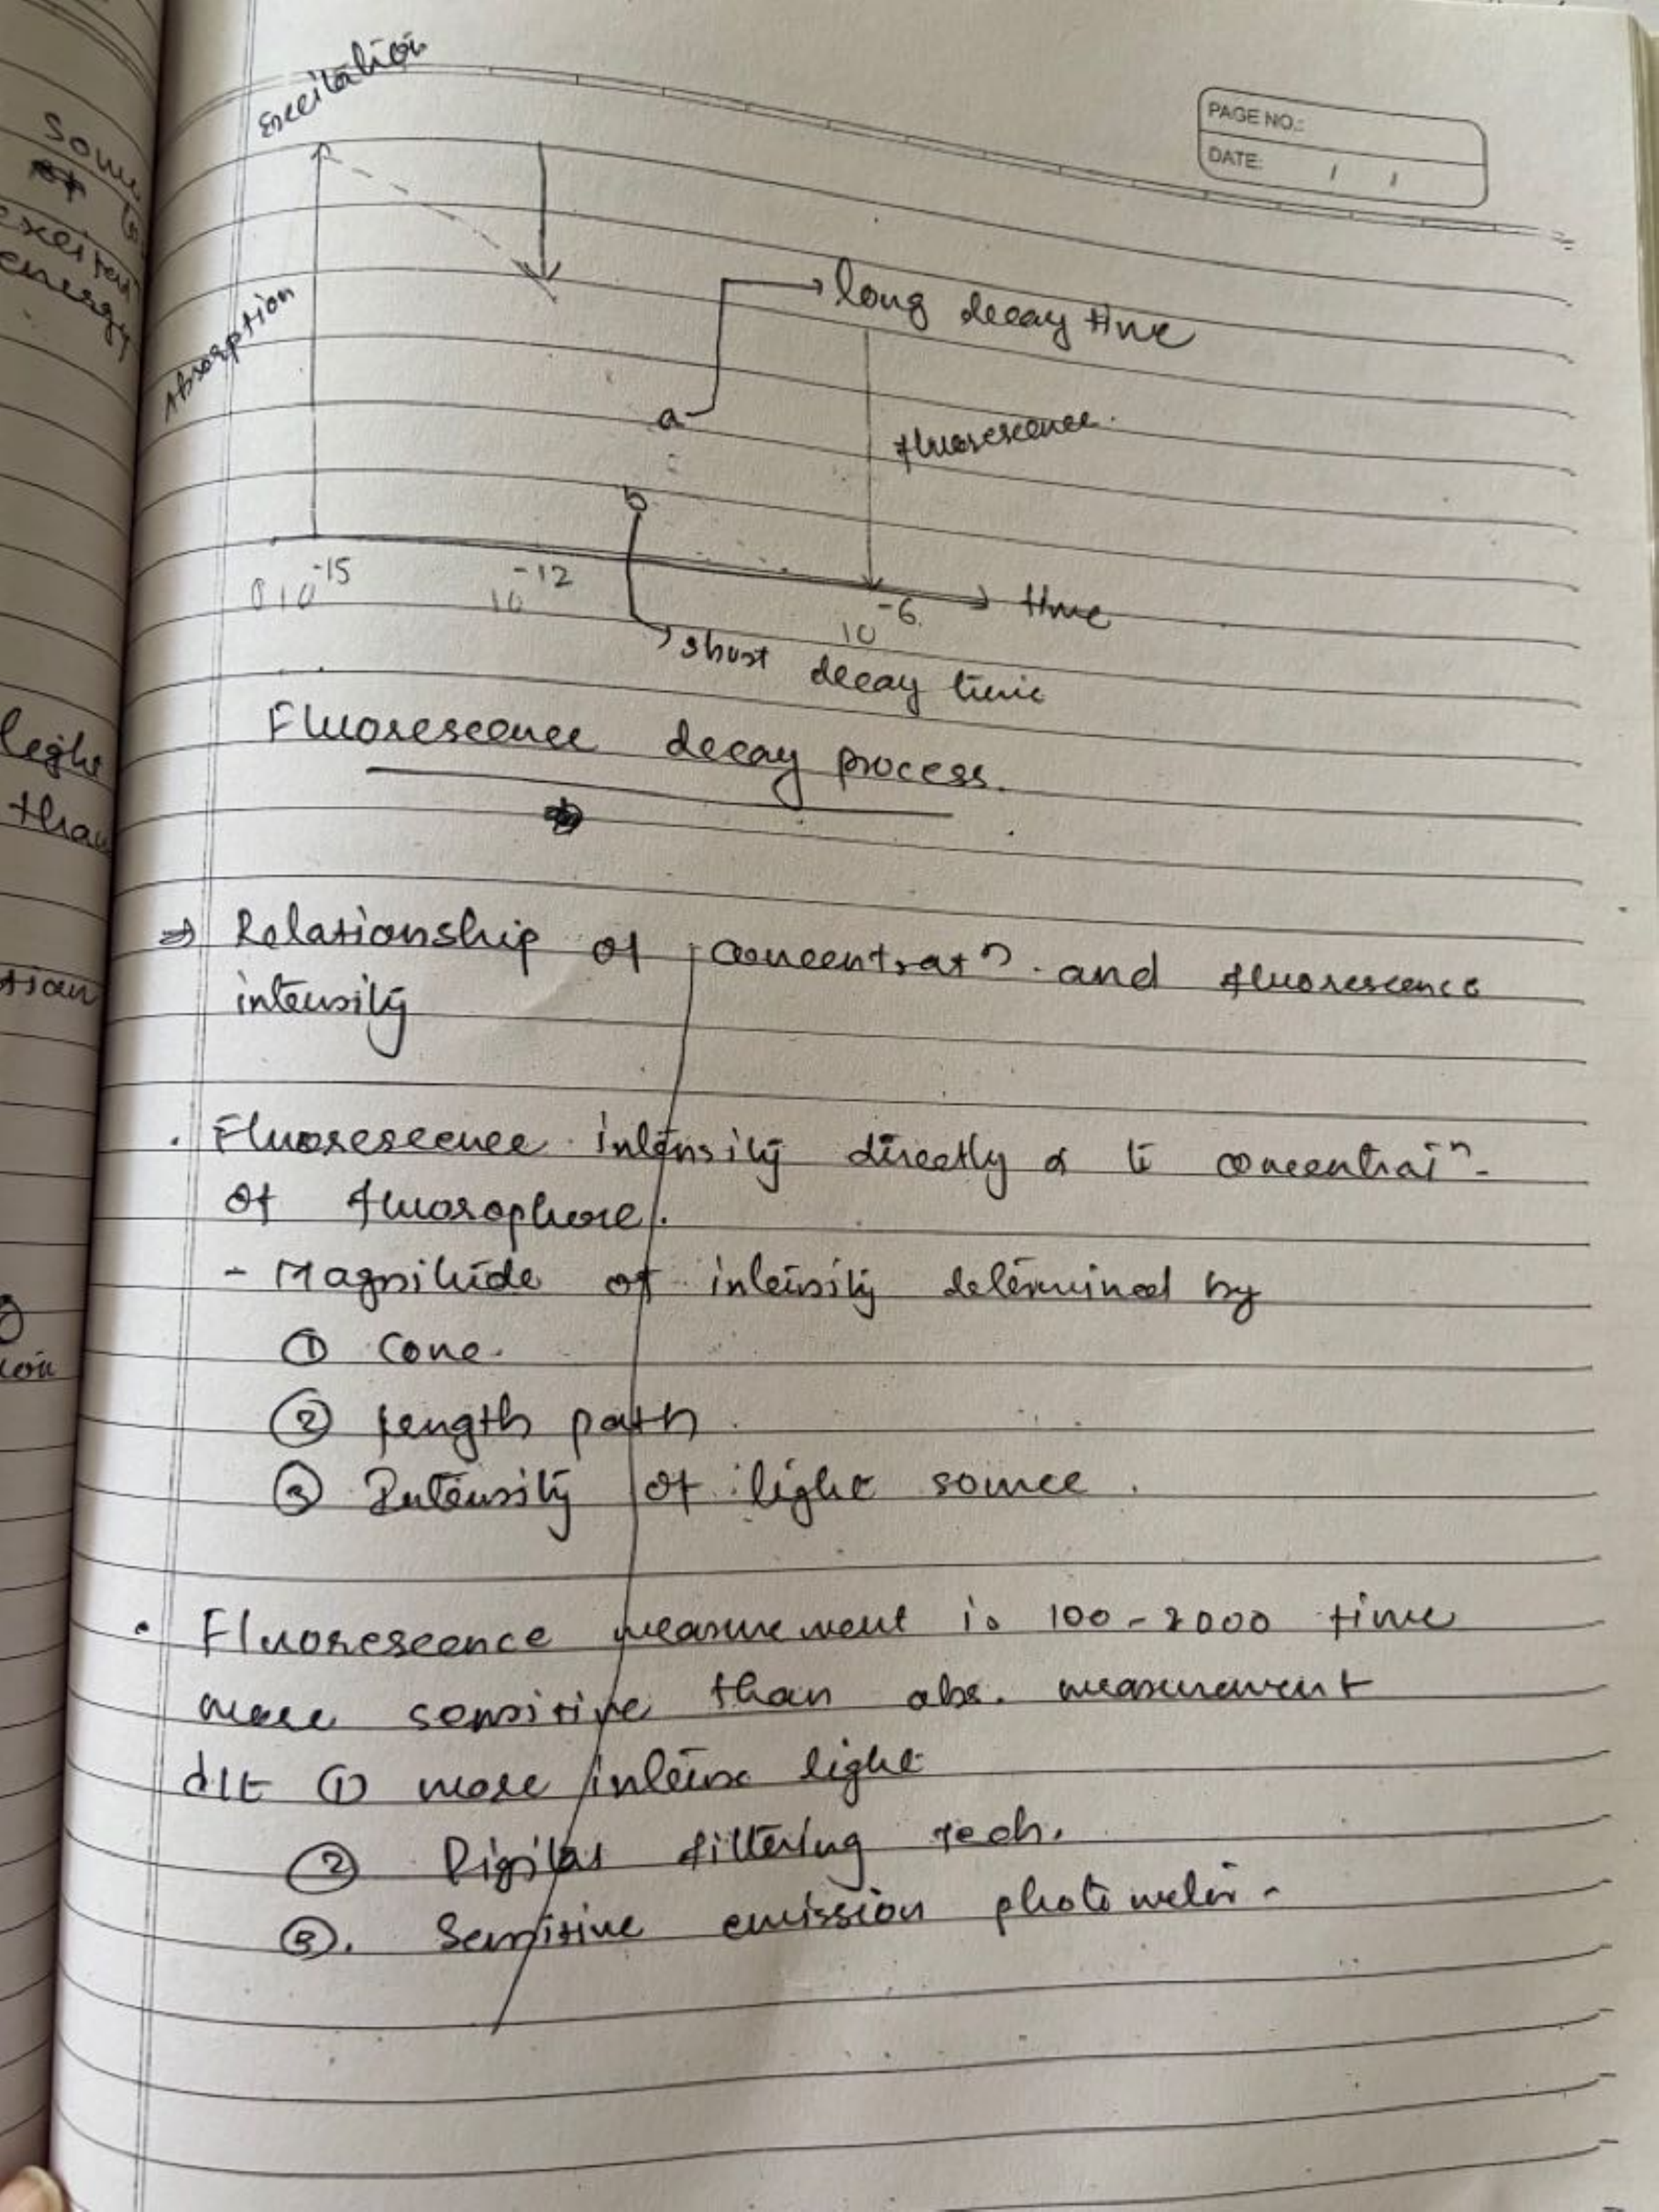 Excitation
PAGE NO.:
DATE: / /
Absorption
long decay time
a
fluorescence.
b
0 10^-15
10^-12
10^-6
time
short decay time
Fluorescence decay process.
⇒ Relationship of concentratⁿ. and fluorescence
intensity
. Fluorescence intensity directly α to concentratⁿ-
of fluorophore.
- Magnitude of intensity determined by
① conc.
② length path
③ Intensity of light source.
• Fluorescence measurement is 100-2000 time
more sensitive than abs. measurement
d/t ① more intense light
② Digital filtering tech.
③. Sensitive emission photometer-
some
exited
energy
light
than